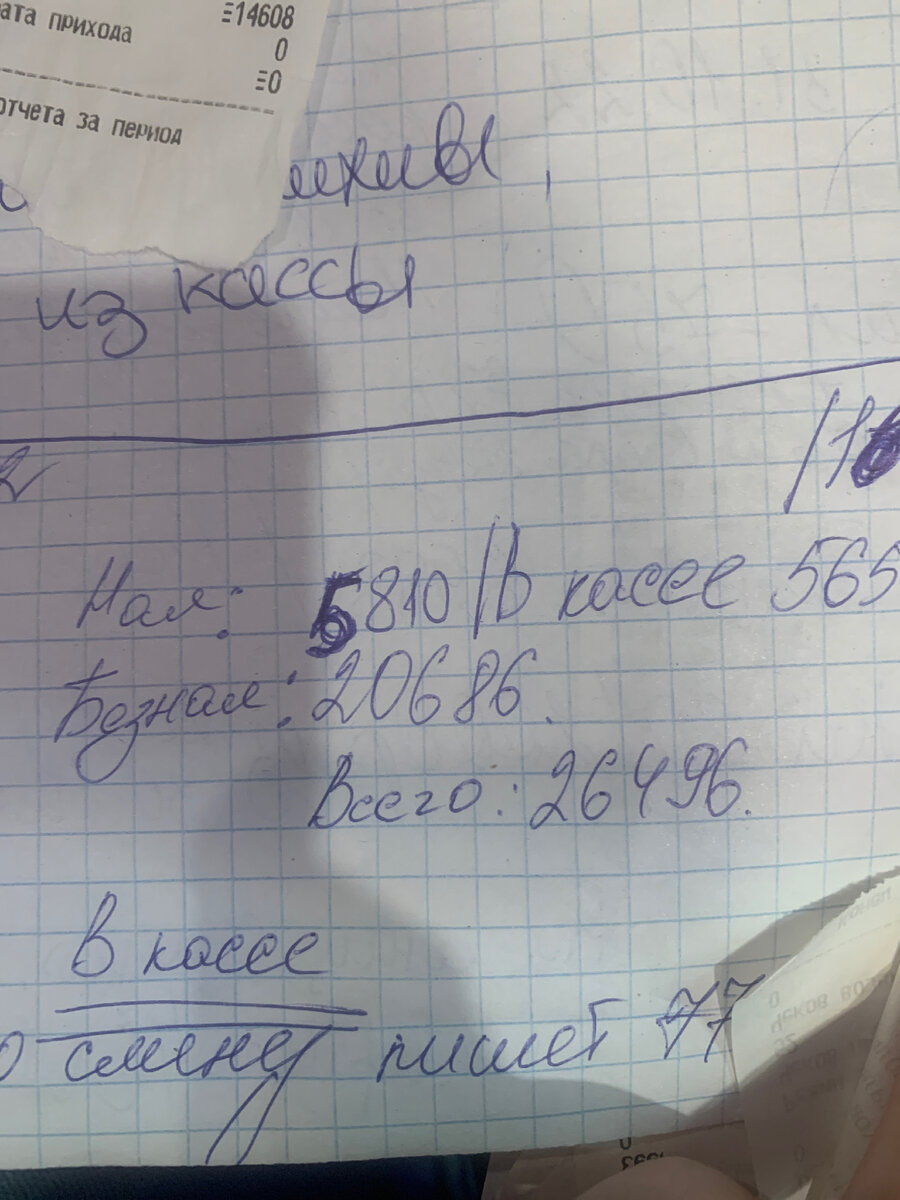 ≡14608
ата прихода
0
≡0
отчета за период
из кассы
Нал: 5810 | В кассе 565
Безнал: 20686.
Всего: 26496.
В кассе
смену пишет 77